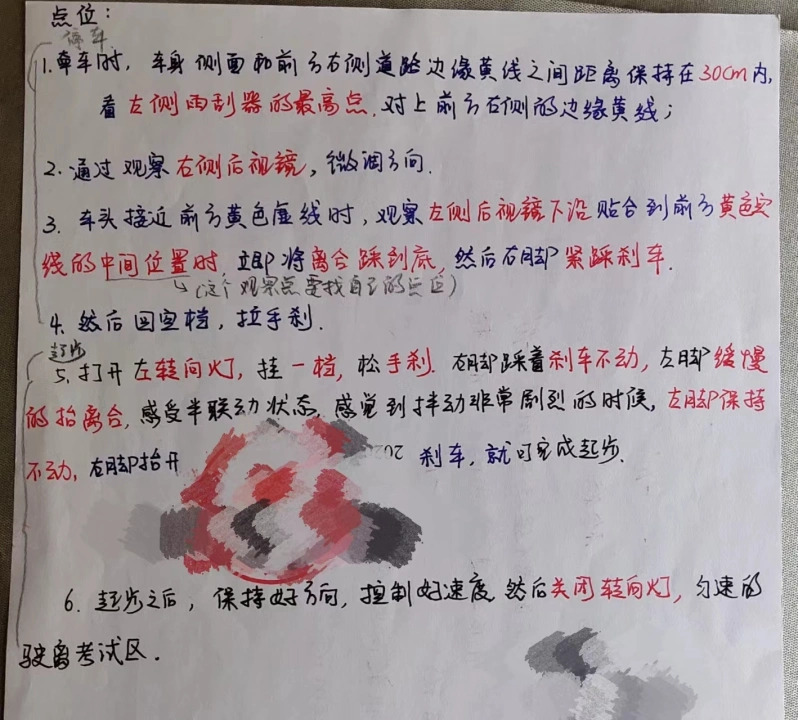 点位:
停车
1.牵车时,车身侧面和前方右侧道路边缘黄线之间距离保持在30cm内,
看左侧雨刮器的最高点,对上前方右侧的边缘黄线;
2.通过观察右侧后视镜,微调方向.
3.车头接近前方黄色虚线时,观察左侧后视镜下沿贴合到前方黄色实
线的中间位置时,立即将离合踩到底,然后右脚紧踩刹车.
(这个观察点要找自己的点位)
4.然后回空档,拉手刹.
起步
5.打开左转向灯,挂一档,松手刹.右脚踩着刹车不动,左脚缓慢
的抬离合,感受半联动状态,感觉到抖动非常剧烈的时候,左脚保持
不动,右脚抬开 刹车,就可完成起步.
6.起步之后,保持好方向,控制好速度,然后关闭转向灯,匀速的
驶离考试区.